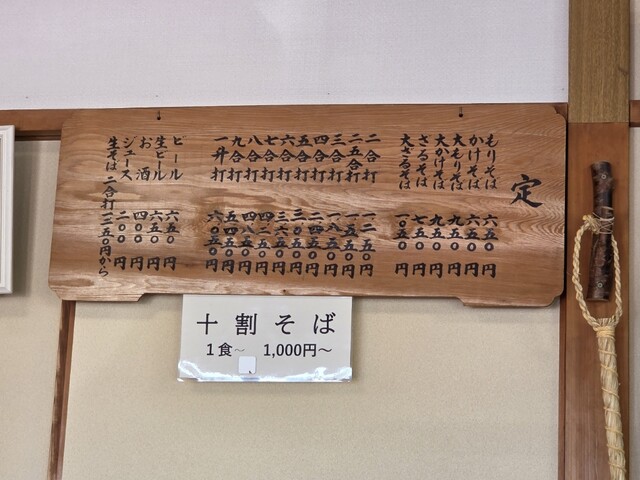 定
もりそば 六五〇円
かけそば 六五〇円
大もりそば 九五〇円
大かけそば 九五〇円
ざるそば 七五〇円
大ざるそば 一〇五〇円
二合打 一二五〇円
二五合打 一五五〇円
三合打 一八五〇円
四合打 二四五〇円
五合打 三〇五〇円
六合打 三六五〇円
七合打 四二五〇円
八合打 四八五〇円
九合打 五四五〇円
一升打 六〇五〇円
ビール 六五〇円
生ビール 六五〇円
お酒 四〇〇円
ジュース 二〇〇円
生そば 二合打一二五〇円から
十割そば
1食～ 1,000円～